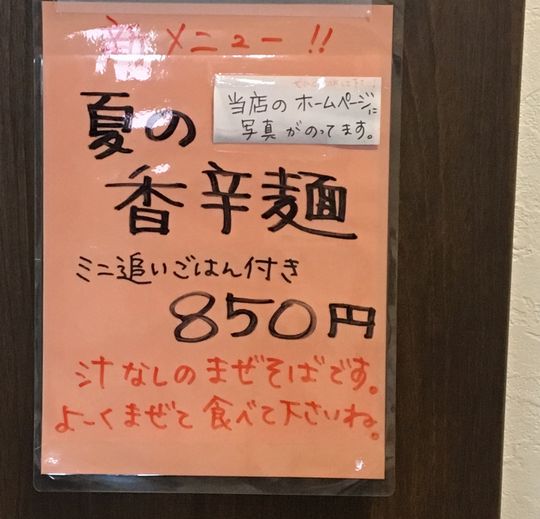 新メニュー!!
当店のホームページに
写真がのってます。
夏の
香辛麺
ミニ追いごはん付き
850円
汁なしのまぜそばです。
よーくまぜて食べて下さいね。